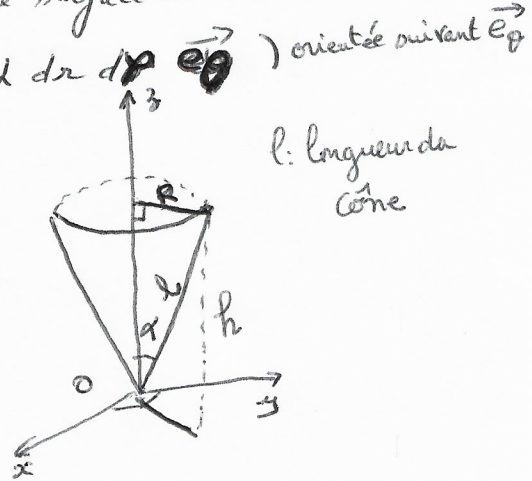 dr dφ e⃗θ ) orientée suivant e⃗θ
z
l: longueur du
cône
R
l
α
h
O
y
x